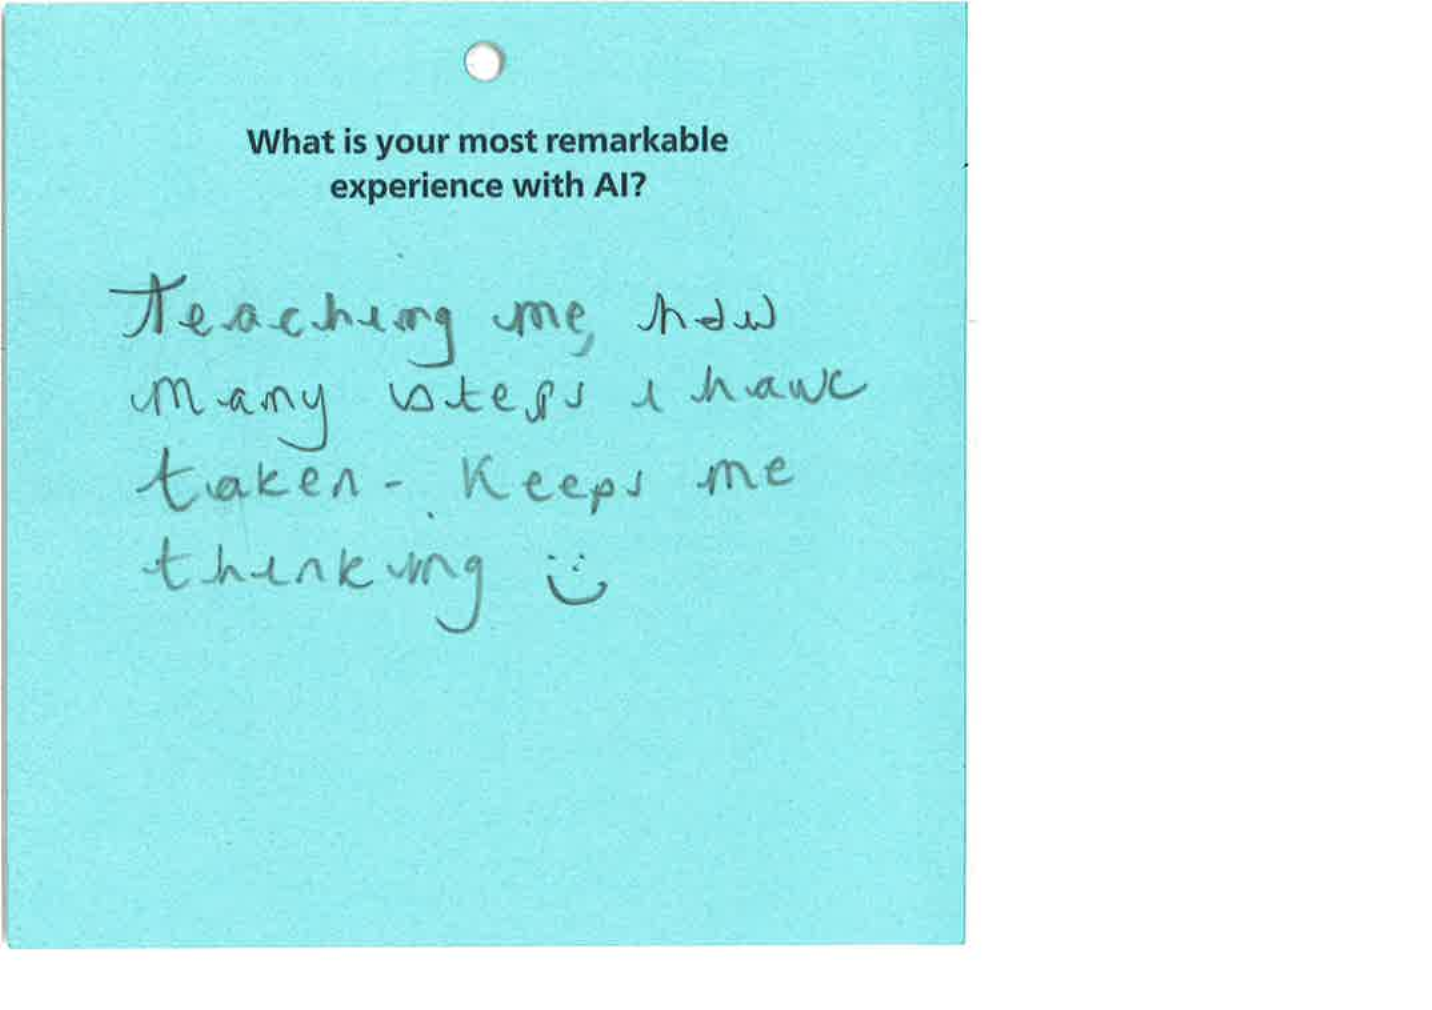 What is your most remarkable
experience with AI?
Teaching me, how
many steps i have
taken - Keeps me
thinking